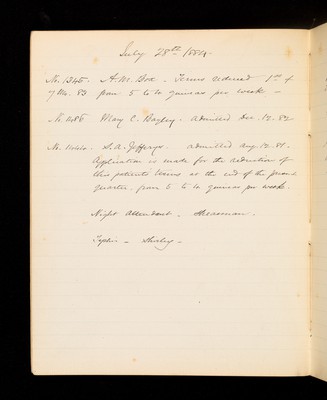 July 28th 1884.
No. 1345. A. M. Box. Terms reduced 1st of
7 Mo. 83 from 5 to 4 guineas per week -
No. Mary C. Bayley. Admitted Dec. 12. 82
No. S. A. Jefferys. admitted Aug. 12. 81.
Application is made for the reduction of
this patients terms at the end of the present
quarter from 5 to 4 guineas per week.
Night Attendant.
- Shirley -